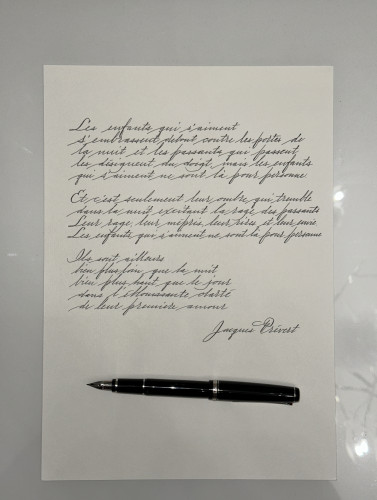 Les enfants qui s'aiment
s'embrassent debout contre les portes de
la nuit et les passants qui passent
les désignent du doigt, mais les enfants
qui s'aiment ne sont là pour personne
Et c'est seulement leur ombre qui tremble
dans la nuit excitant la rage des passants
Leur rage, leur mépris, leur rire et leur envie
Les enfants qui s'aiment ne sont là pour personne
Ils sont ailleurs
bien plus loin que la nuit
bien plus haut que le jour
dans l'éblouissante clarté
de leur premiere amour
Jacques Prévert